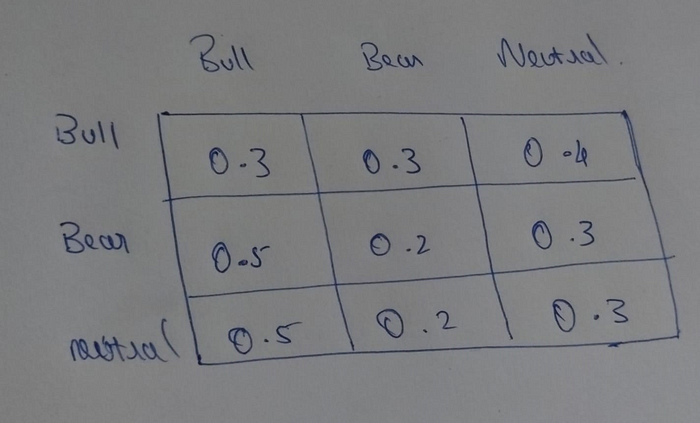 Bull Bear Neutral.
Bull 0.3 0.3 0.4
Bear 0.5 0.2 0.3
neutral 0.5 0.2 0.3